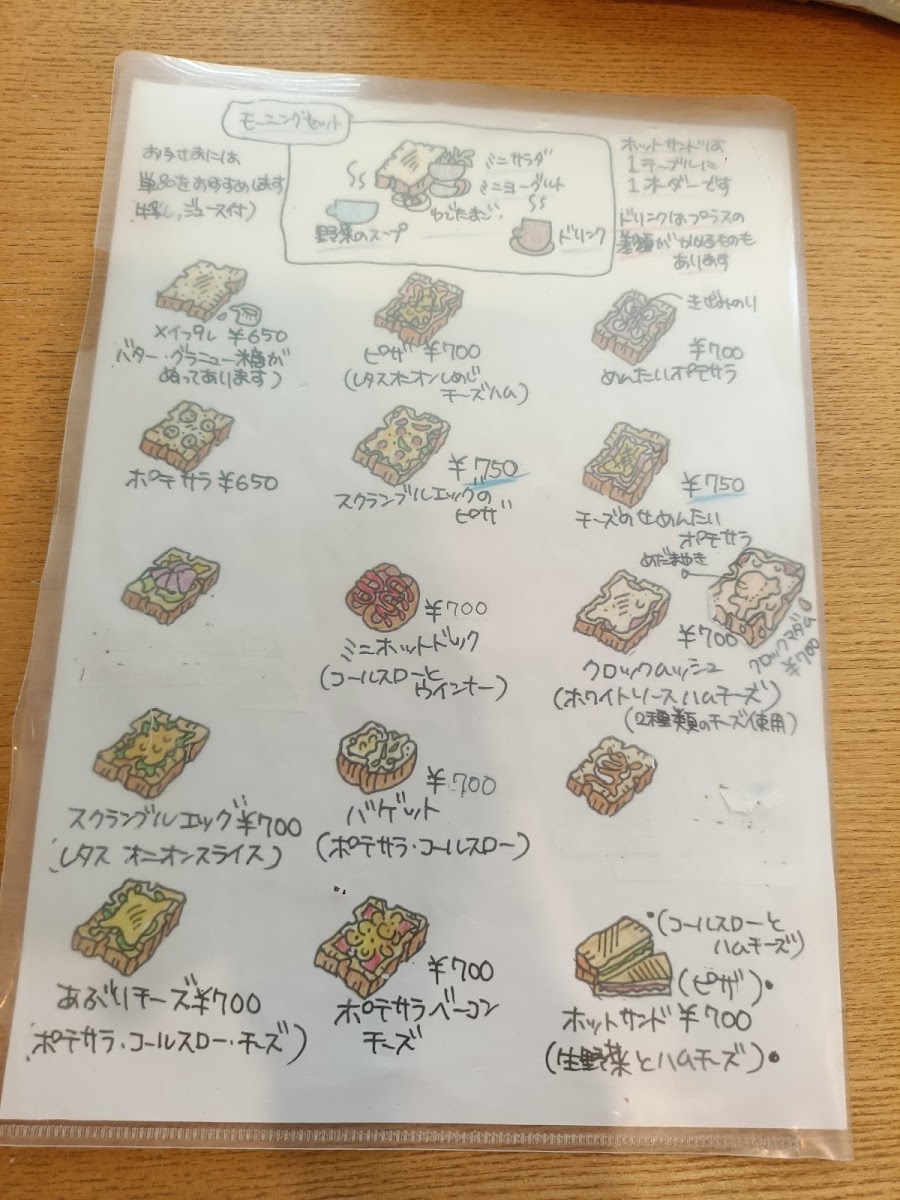 モーニングセット
お子さまには
単品をおすすめします
ジュース付)
ミニサラダ
ミニヨーグルト
ゆでたまご
野菜のスープ
ドリンク
ホットサンドは
1テーブルに
1オーダーです
ドリンクはプラスの
差額がかかるものも
あります
メイプル ¥650
バター・グラニュー糖が
ぬってあります)
ピザ ¥700
(レタスオニオンしめじ
チーズハム)
きざみのり
¥700
めんたいポテサラ
ポテサラ ¥650
¥750
スクランブルエッグの
ピザ
¥750
チーズのせめんたい
ポテサラ
¥700
ミニホットドック
(コールスローと
ウインナー)
めだまやき
¥700
クロックムッシュ
(ホワイトソースハムチーズ)
(2種類のチーズ使用)
クロックマダム
¥700
スクランブルエッグ ¥700
(レタス オニオンスライス)
¥700
バゲット
(ポテサラ・コールスロー)
あぶりチーズ ¥700
(ポテサラ・コールスロー・チーズ)
¥700
ポテサラベーコン
チーズ
・(コールスローと
ハムチーズ)
(ピザ)・
ホットサンド ¥700
(生野菜とハムチーズ)・